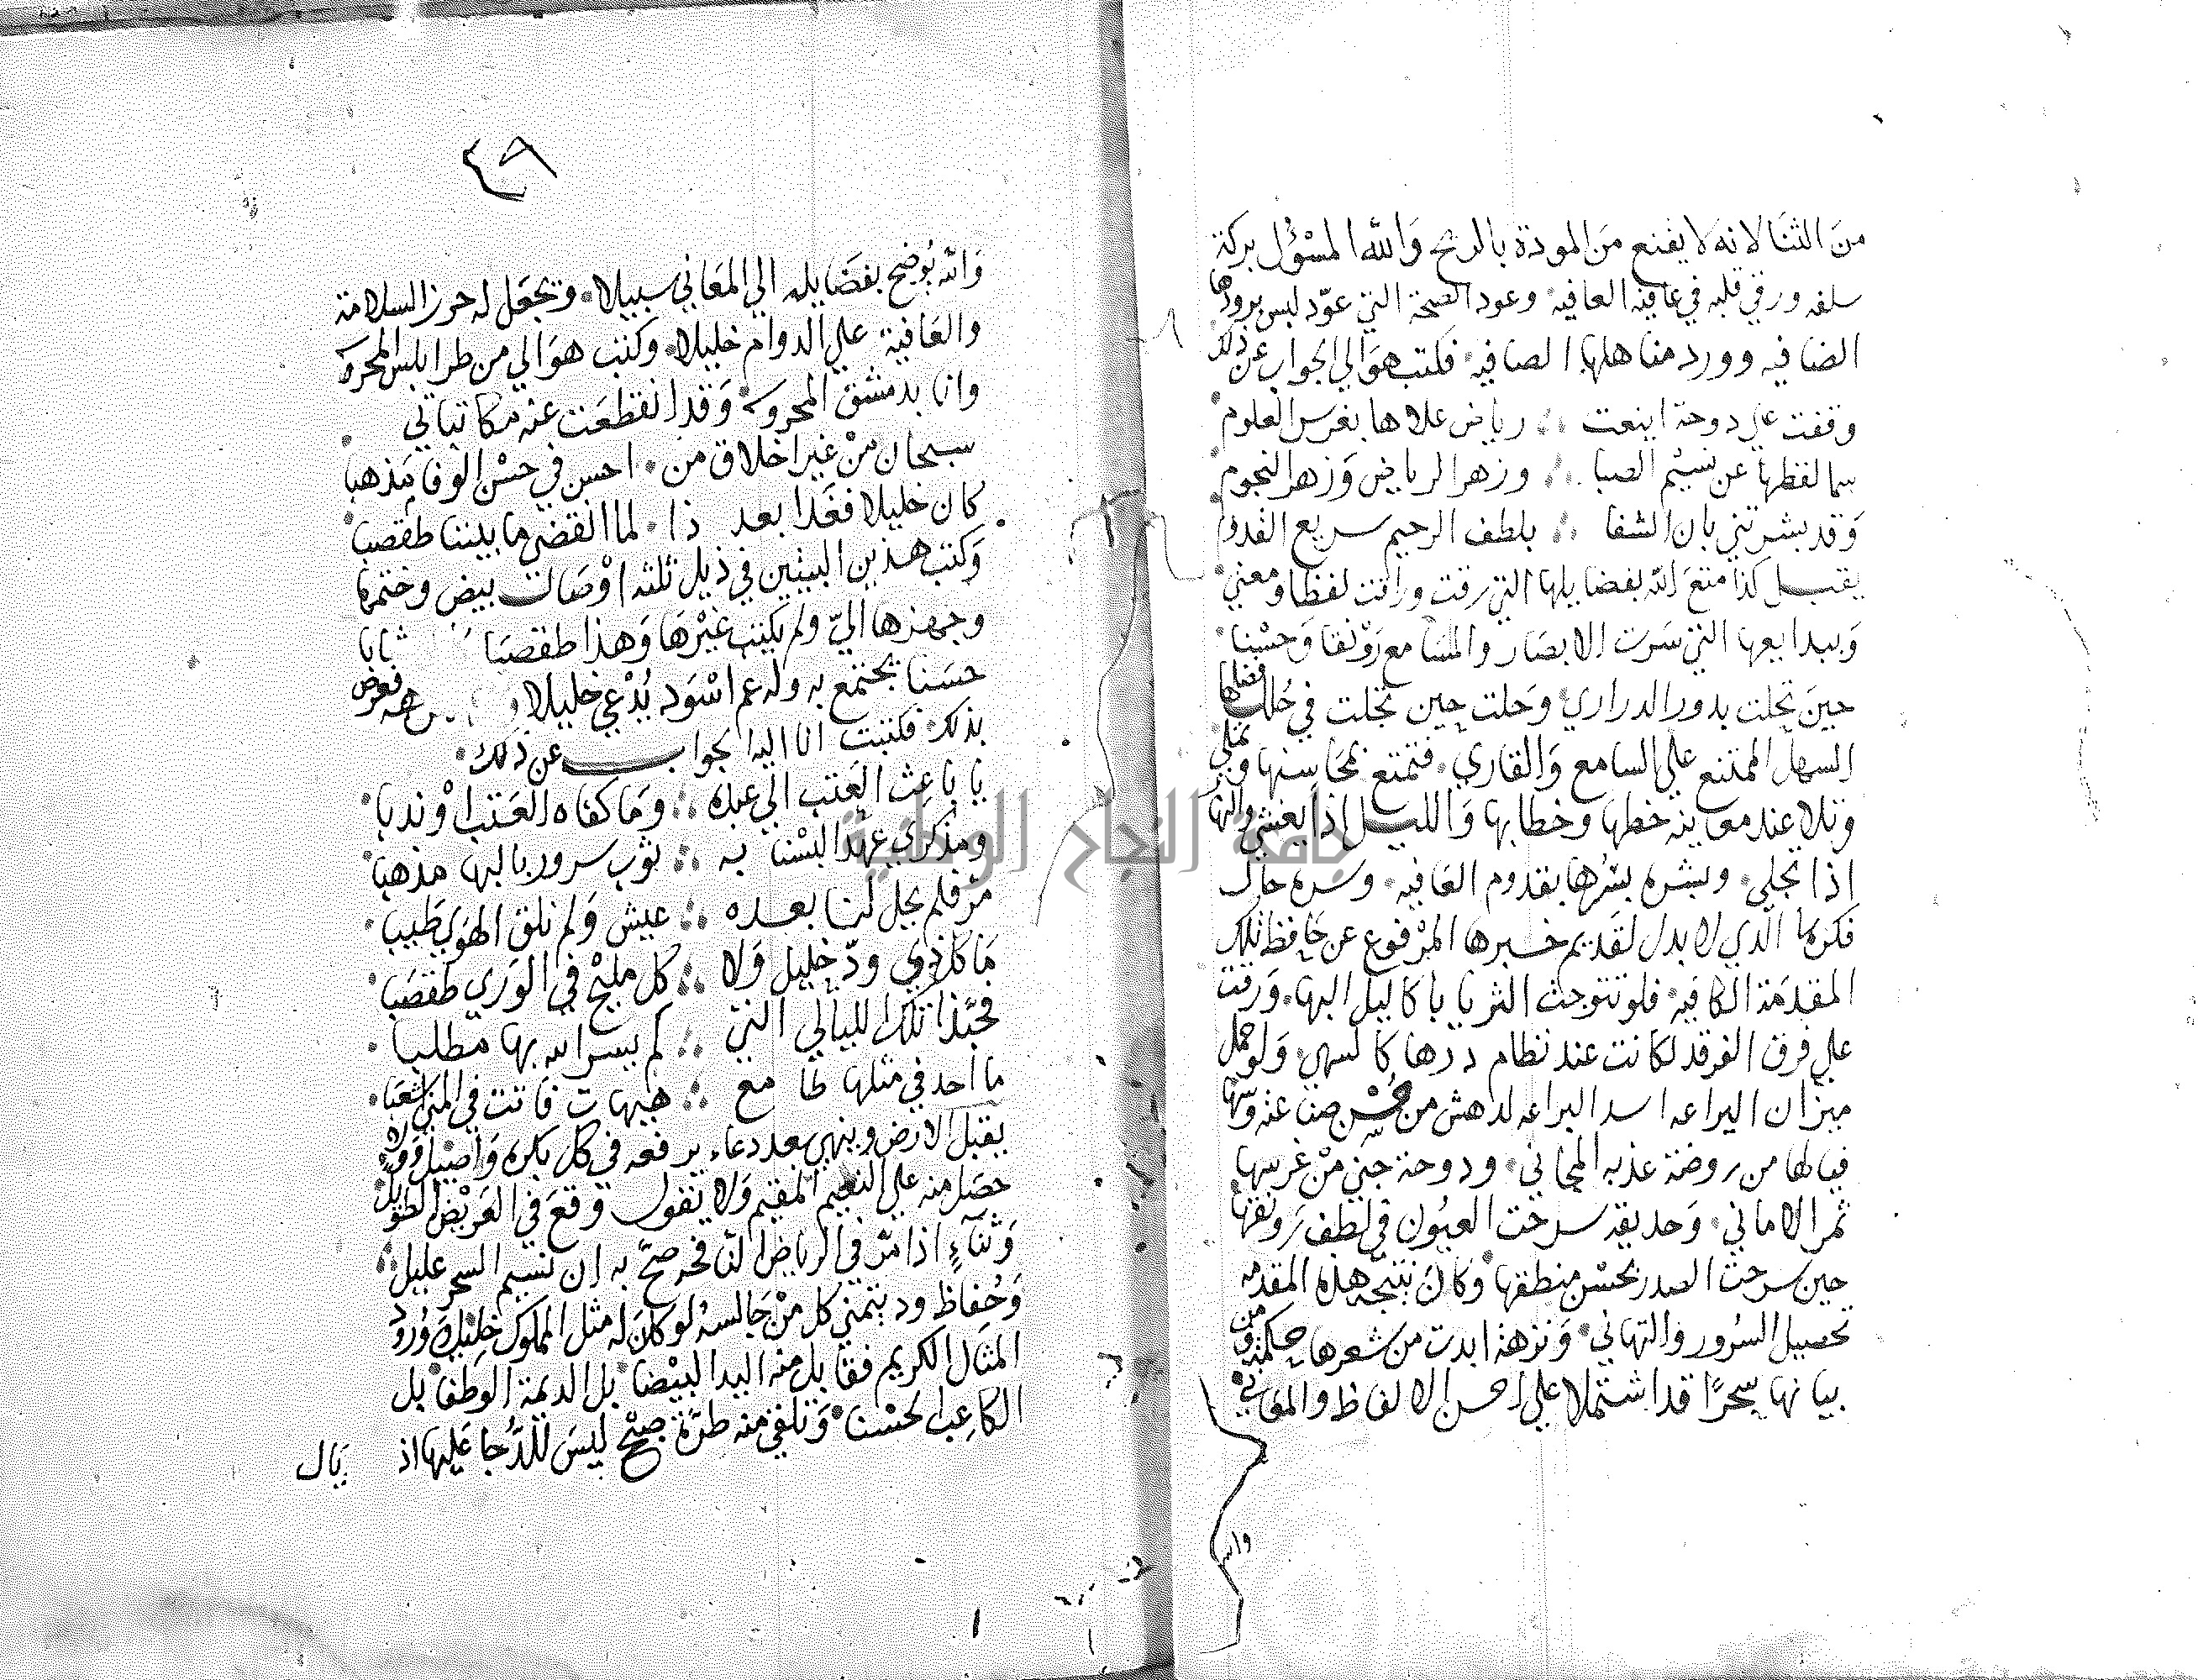 من الثنا لانه لا يقنع من المودة بالريح والله المسؤل بركة
سلفه ورقي قلبه في عافية العافيه وعود الصحة التي عوّد لبس برودها
الضافيه وورد مناهلها الصافيه فكتب هو الي الجواب عن ذلك
وقفت علي دوحة اينعت رياض علاها بغرس العلوم
سما لفظها عن نسيم الصبا وزهر الرياض وزهر النجوم
وقد بشرتني بان الشفا بلطف الرحيم سريع القدوم
يقبل كذا متع الله بفضايلها التي رقت وراقت لفظا ومعني
وببدايعها التي سرت الابصار والمسامع رونقا وحسنا
حين تجلت بدور الدراري وحلت حين تجلت في حلل فضلها
السهل الممتنع علي السامع والقاري فتمتع بمحاسنها وتملي
وتلا عند معاينه خطها وخطابها والليل اذا يغشي والنهار
اذا تجلي وبشره بشرها بقدوم العافيه وسره حال
فكرها الذي لا بدل لتقديم خبرها المرفوع عن حافظ تلك
المقدمة الكافيه فلو تتوجت الثريا باكاليل البها ورقت
علي فرق الفرقد لكانت عند نظام درها كالسهي ولو حمل
ميزان اليراعه اسد البراعه لدهش من حسن صناعته وسها
فيالها من روضة عذبه المجاني ودوحة جني من غرسها
ثمر الاماني وحديقه سرحت العيون في لطف رونقها
حين سرحت الصدر بحسن منطقها وكان نتيجه هذه المقدمه
تحصيل السرور والتهاني ونزهة ابدت من شعرها حكمة ومن
بيانها سحرًا قد اشتملا علي احسن الالفاظ والمعاني
والله
٤٩
والله يوضح بفضايله الي المعاني سبيلا ويجعل له حرز السلامة
والعافية علي الدوام خليلا وكتب هو الي من طرابلس المحروسه
وانا بدمشق المحروسه وقد انقطعت عنه مكاتباتي
سبحان من غير اخلاق من احسن في حسن الوفا مذهبا
كان خليلا فغدا بعد ذا لما انقضي ما بيننا طقصبا
وكتب هذين البيتين في ذيل ثلثه اوصال بيض وختمها
وجهزها اليّ ولم يكتب غيرها وهذا طقصبا شابا
حسنا يجتمع به وله عم اسود يدعي خليلا فعرض
بذلك فكتبت انا اليه الجواب عن ذلك
يا باعث العتب الي عبده وما كفاه العتب او ندبا
ومذكري عهدا لبسنا به ثوب سرور بالبها مذهبا
مر فلم يحل لنا بعده عيش ولم نلق الهوي طيبا
ما كل ذي ود خليل ولا كل مليح في الوري طقصبا
فحبذا تلك الليالي التي كم يسر الله بها مطلبا
ما احد في مثلها طامع هيهات فاتت في المني اشعبا
يقبل الارض وينهي بعد دعاء يرفعه في كل بكرة واصيل وولاء
حصل منه علي النعيم المقيم ولا يقول وقع في العريض الطويل
وثناء اذا مر في الرياض النافحه صح به ان نسيم السحر عليل
وحفاظ ود يتمني كل من جالسه لو كان له مثل المملوك خليل ورود
المثال الكريم فقابل منه اليد البيضا بل الديمة الوطفا بل
الكاعب الحسنا وتلقي منه طرة صبح ليس للدجا عليها اذيال